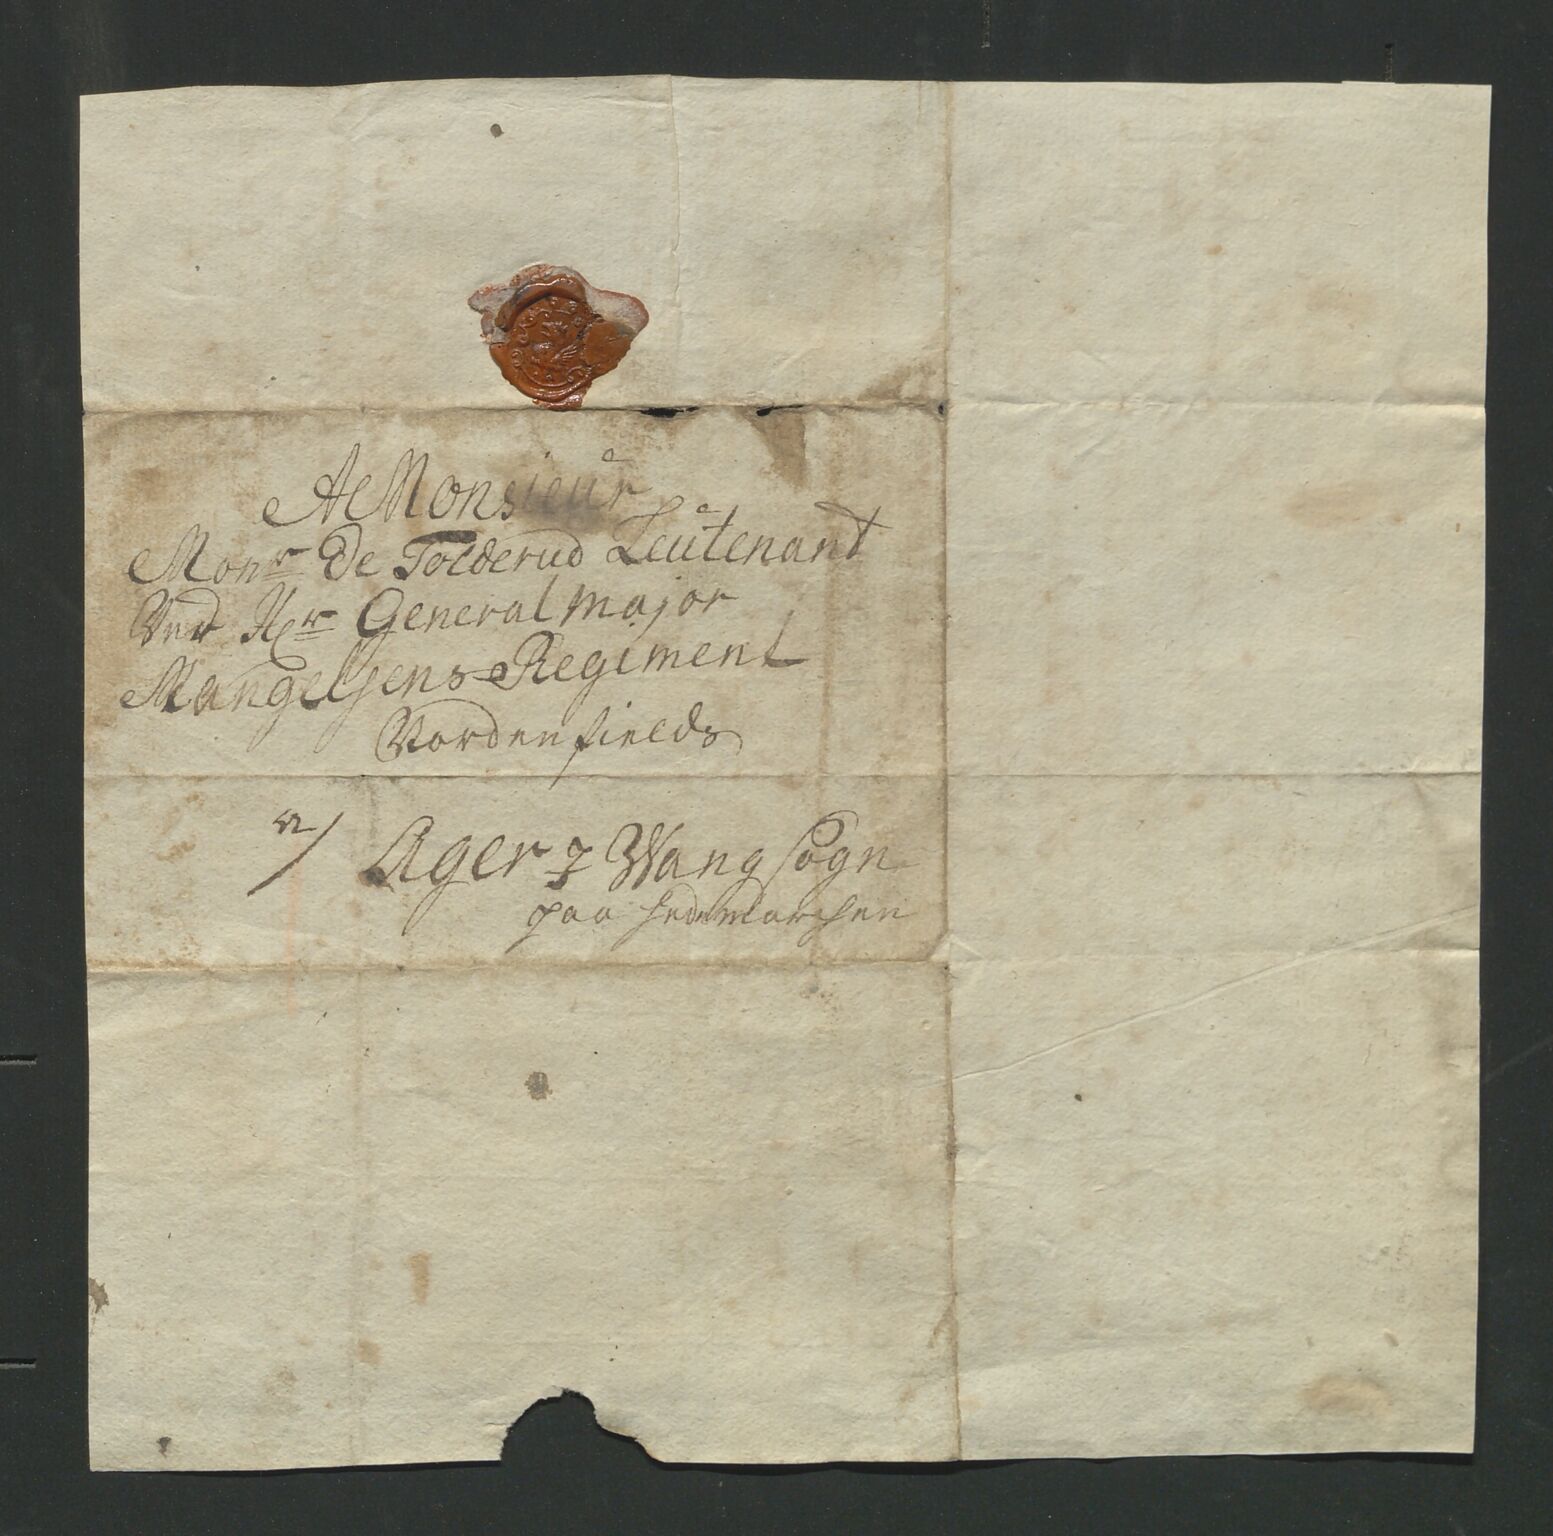 A Monsieur
Monr De Tolderud Leutenant
Ved Hr General major
Mangelsens Regiment
Nordenfields
Ager i Wang Sogn
paa Hedemarchen